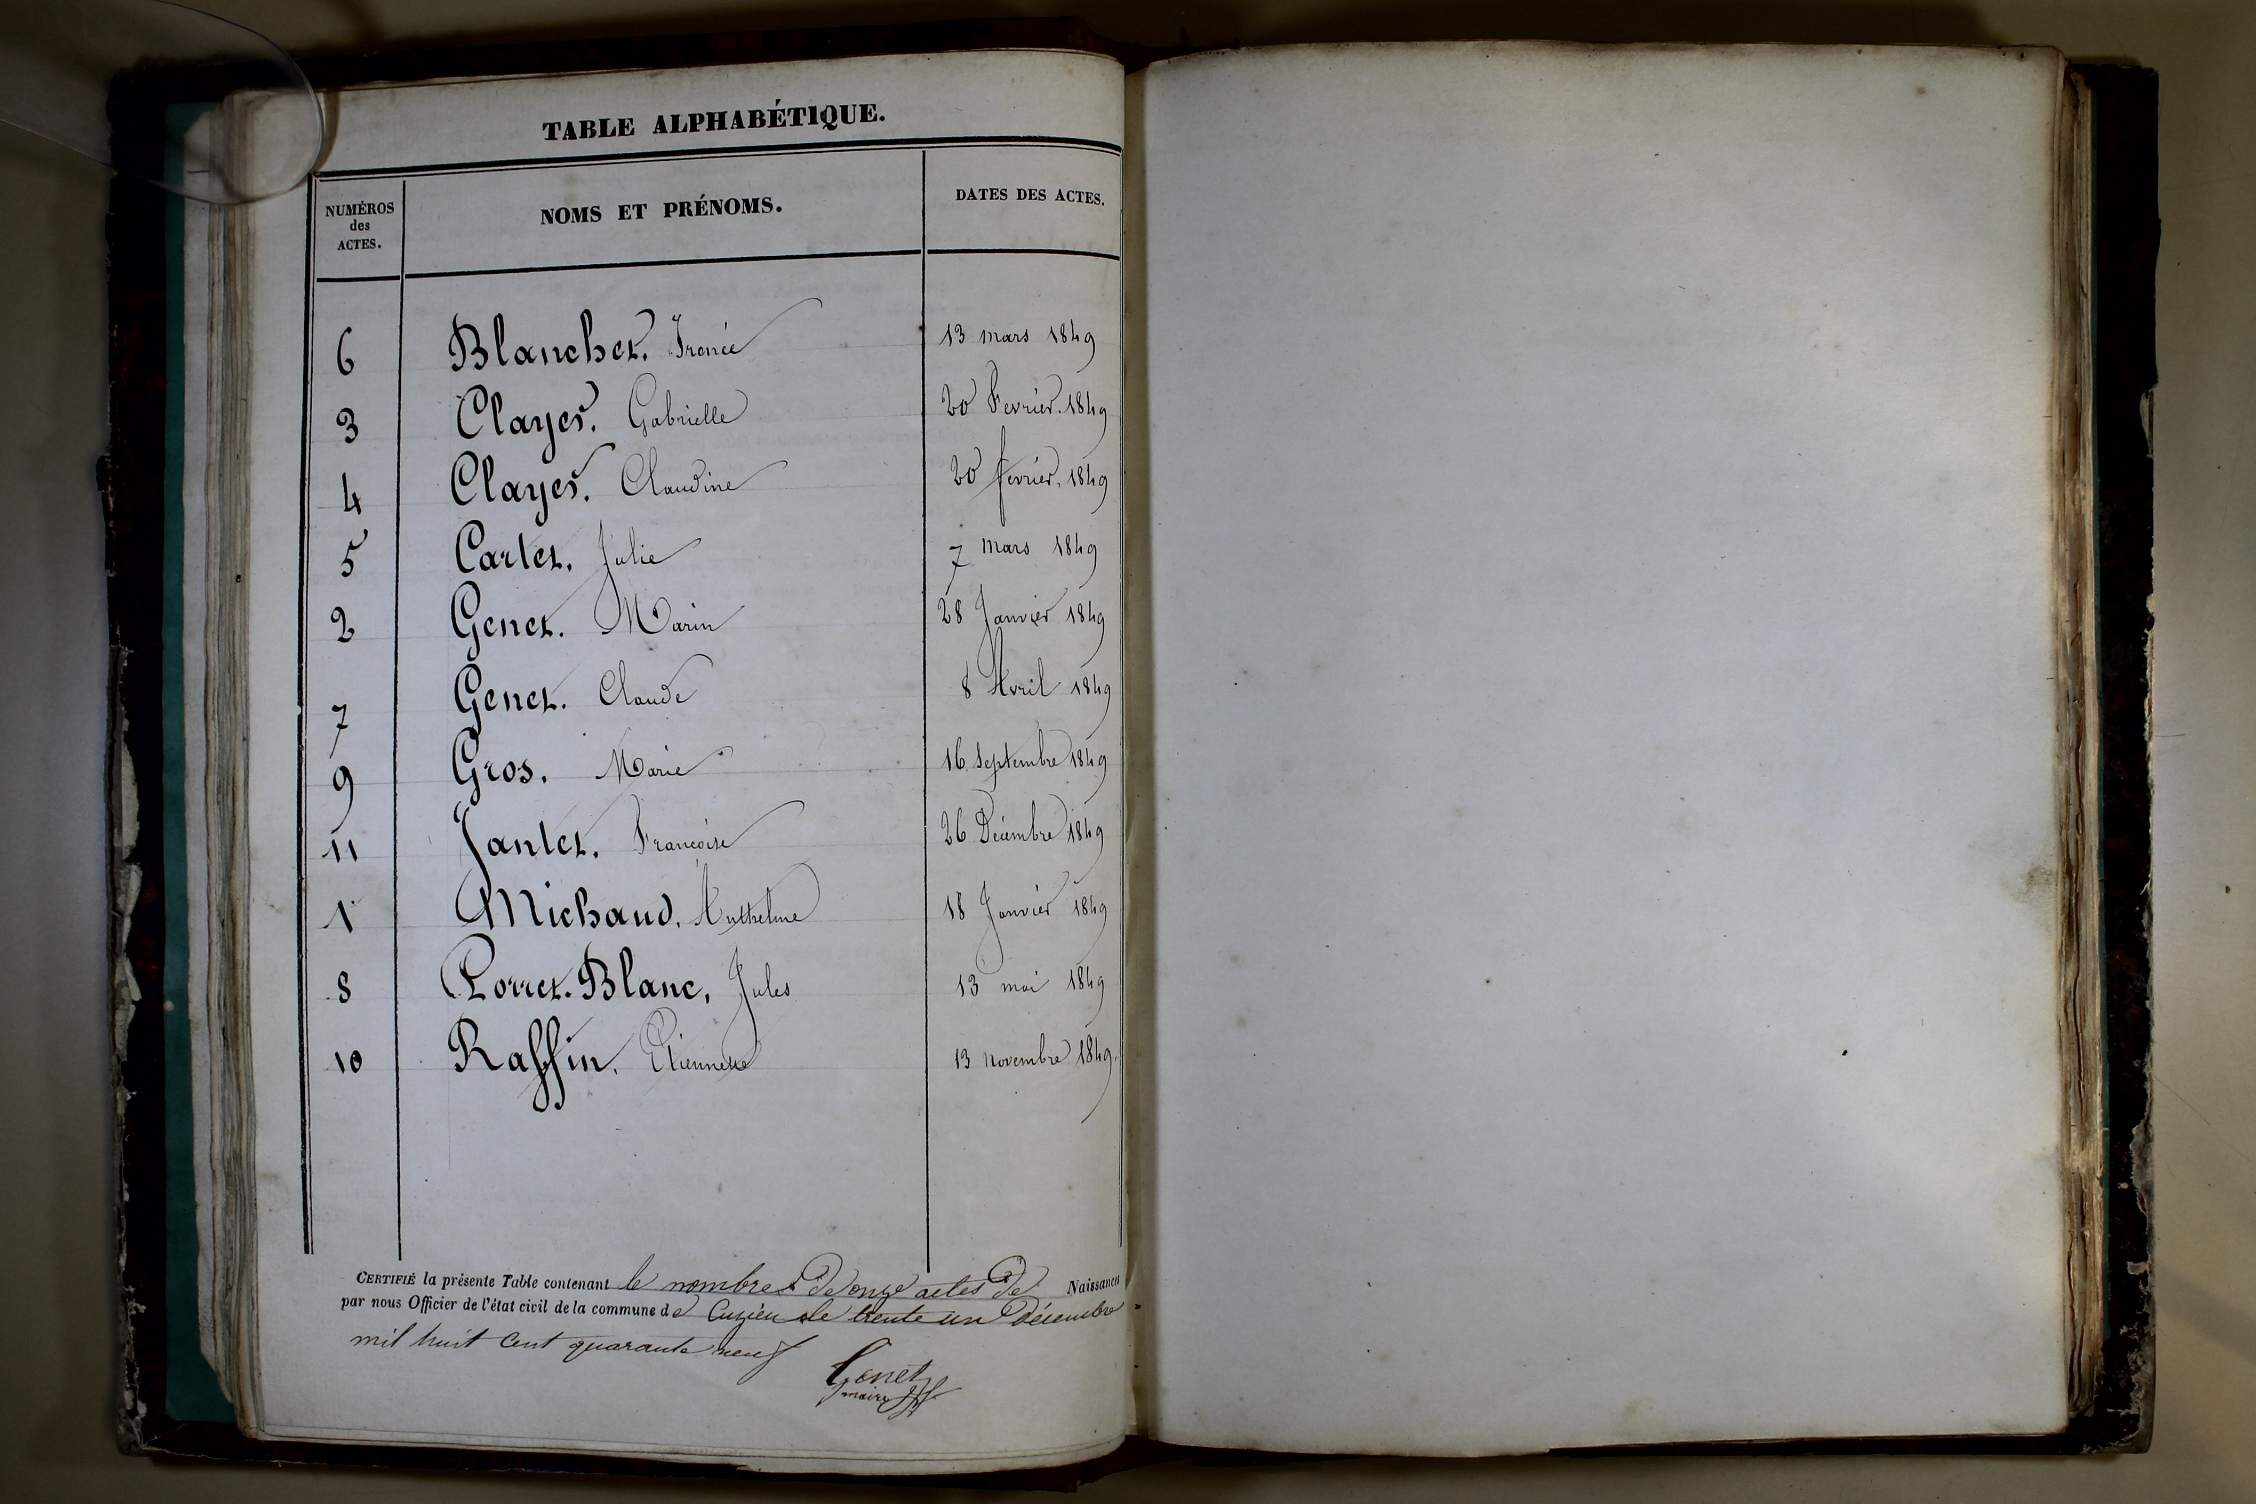 TABLE ALPHABÉTIQUE.
NUMÉROS des ACTES. NOMS ET PRÉNOMS. DATES DES ACTES.
6 Blanchet. Irénée 13 mars 1849
3 Clayet. Gabrielle 20 Fevrier. 1849
4 Clayet. Claudine 20 fevrier. 1849
5 Cartet. Julie 7 mars 1849
2 Genet. Marin 28 Janvier 1849
7 Genet. Claude 8 Avril 1849
9 Gros. Marie 16 Septembre 1849
11 Jantet. Francoise 26 Décembre 1849
1 Michaud. Anthelme 18 Janvier 1849
8 Porret-Blanc, Jules 13 mai 1849
10 Raffin. Etiennette 13 novembre 1849
CERTIFIÉ la présente Table contenant le nombre de onze actes de Naissances
par nous Officier de l'état civil de la commune de Cuzieu le trente un Décembre
mil huit cent quarante neuf
Genet
maire